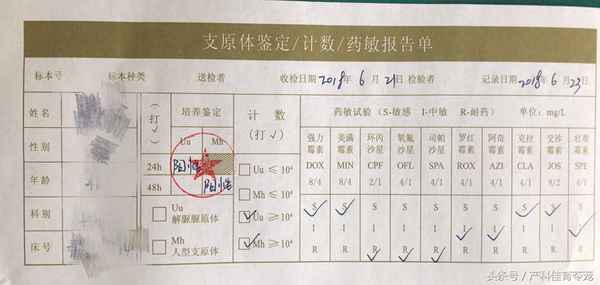 支原体鉴定/计数/药敏报告单
标本号 标本种类 送检者 收检日期 2018年 6 月 21日 检验者 记录日期 2018年 6 月 23
姓名
性别
年龄
科别
床号
(打√)
24h
48h
培养鉴定
Uu Mh
阳性
阳性
Uu
解脲脲原体
Mh
人型支原体
计 数
(打√)
Uu ≤ 10⁴
Mh ≤ 10⁴
Uu ≥ 10⁴
Mh ≥ 10⁴
药敏试验 (S-敏感 I-中敏 R-耐药) 单位: mg/L
强力霉素 美满霉素 环丙沙星 氧氟沙星 司帕沙星 罗红霉素 阿奇霉素 克拉霉素 交沙霉素 壮观霉素
DOX MIN CPF OFL SPA ROX AZI CLA JOS SPE
8/4 8/4 2/1 4/1 4/1 4/1 4/1 4/1 8/2 4/1
S S S S S S S S S S
I I I I I I I I I I
R R R R R R R R R R
头条号/产科佳育李龙